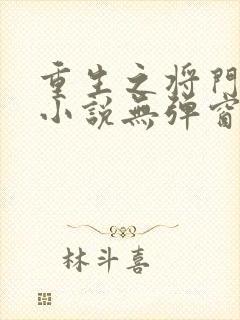 重生之将門
小説無弹窗
林斗喜